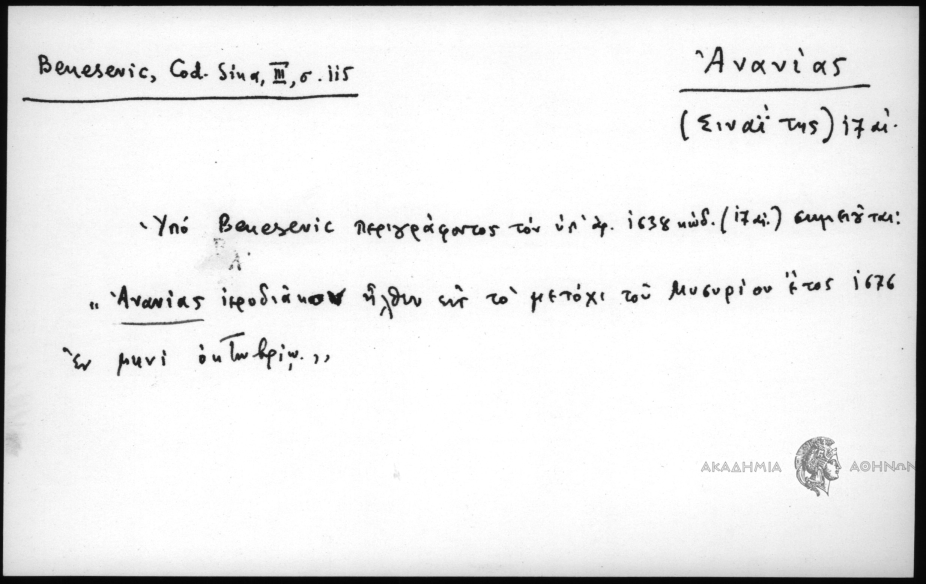 Benesevic, Cod. Sina, III, σ. 115
Ἀνανίας
(Σιναΐτης) 17 αἰ.
Ὑπό Benesevic περιγράφοντος τόν ὑπ' ἀρ. 1638 κώδ. (17 αἰ.) σημειοῦται:
„ Ἀνανίας ἱεροδιάκον ἦλθεν εἰς τὸ μετόχι τοῦ Μισυρίου ἔτος 1676
ἐν μηνὶ ὀκτωβρίῳ. „
ΑΚΑΔΗΜΙΑ ΑΘΗΝΩΝ